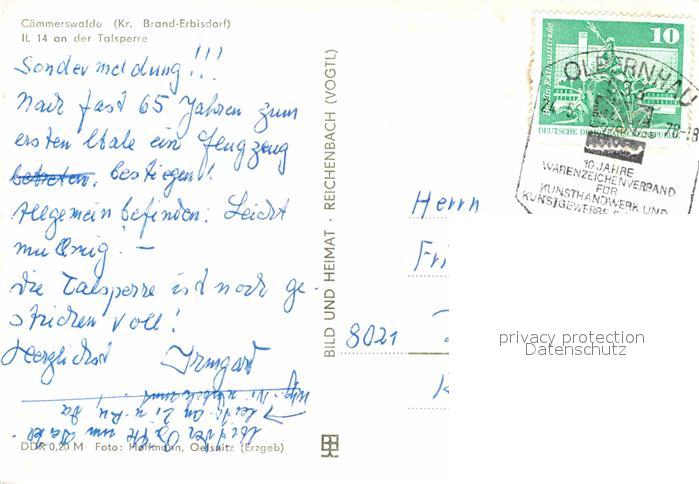 Cämmerswalde (Kr. Brand-Erbisdorf)
IL 14 an der Talsperre
Sondermeldung!!!
Nach fast 65 Jahren zum
ersten Male ein Flugzeug
betreten, bestiegen!
Allgemeinbefinden: Leicht
mulmig! –
Die Talsperre ist noch ge-
strichen voll!
Herzlichst Irmgard
DDR 0,20 M Foto: Hoffmann, Oelsnitz (Erzgeb)
BILD UND HEIMAT · REICHENBACH (VOGTL)
10
DEUTSCHE DEMOKRATISCHE REPUBLIK
OLBERNHAU
10 JAHRE
WARENZEICHENVERBAND
FÜR
KUNSTHANDWERK UND
KUNSTGEWERBE
Herrn
8021
privacy protection
Datenschutz